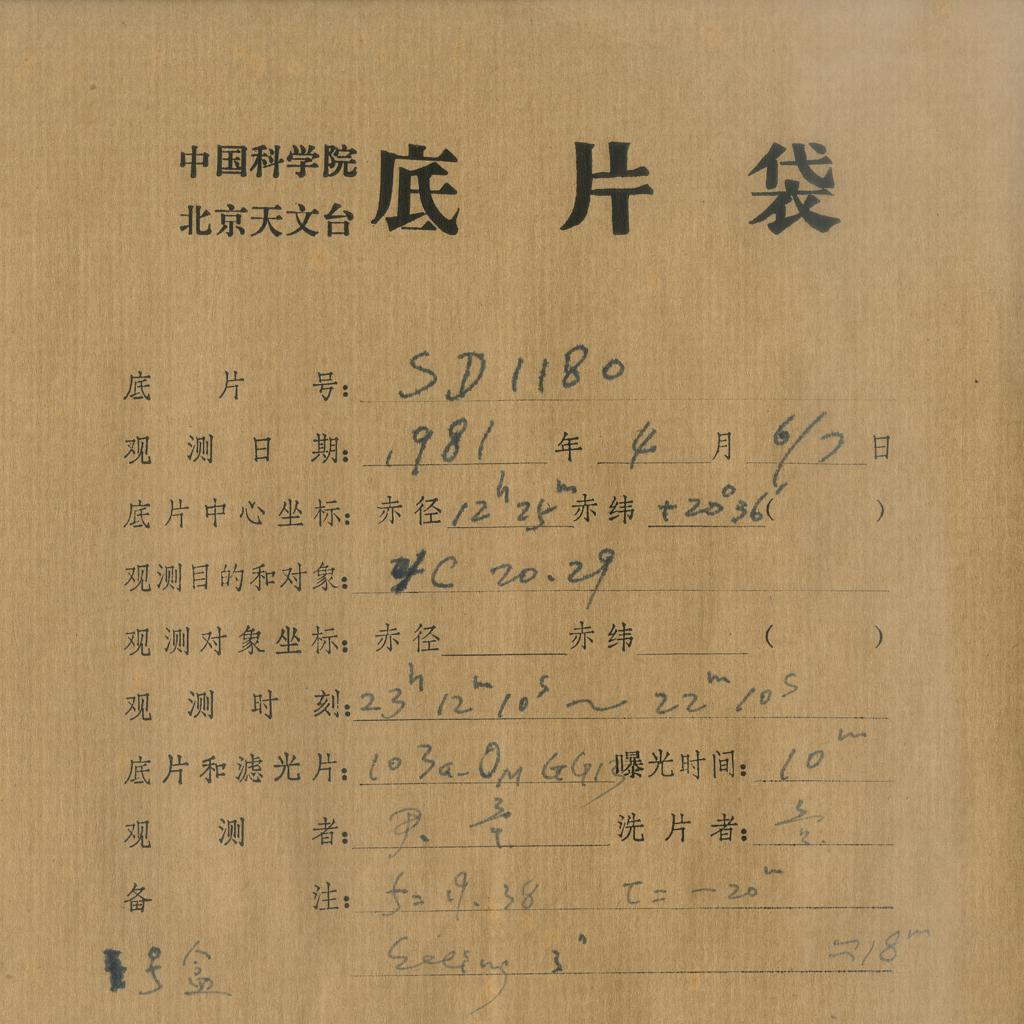 中国科学院
北京天文台
底片袋
底片号: SD1180
观测日期: 1981年4月6/7日
底片中心坐标: 赤径12h25m赤纬+20°36′( )
观测目的和对象: 4C 20.29
观测对象坐标: 赤径 赤纬 ( )
观测时刻: 23h12m10s～22m10s
底片和滤光片: 103a-OM GG13 曝光时间: 10m
观测者: 洗片者:
备注: f=19.38 τ=-20m
Seeing 3" ≈18m
号盒